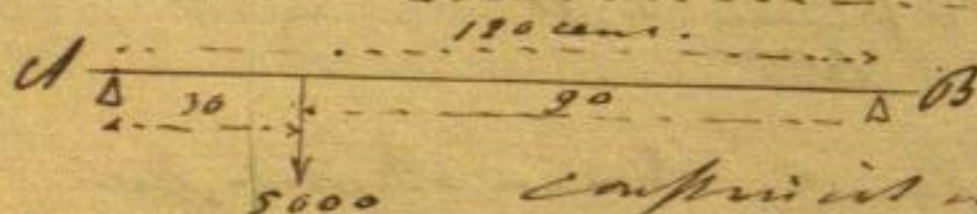 120 cent.
A B
30 90
5000